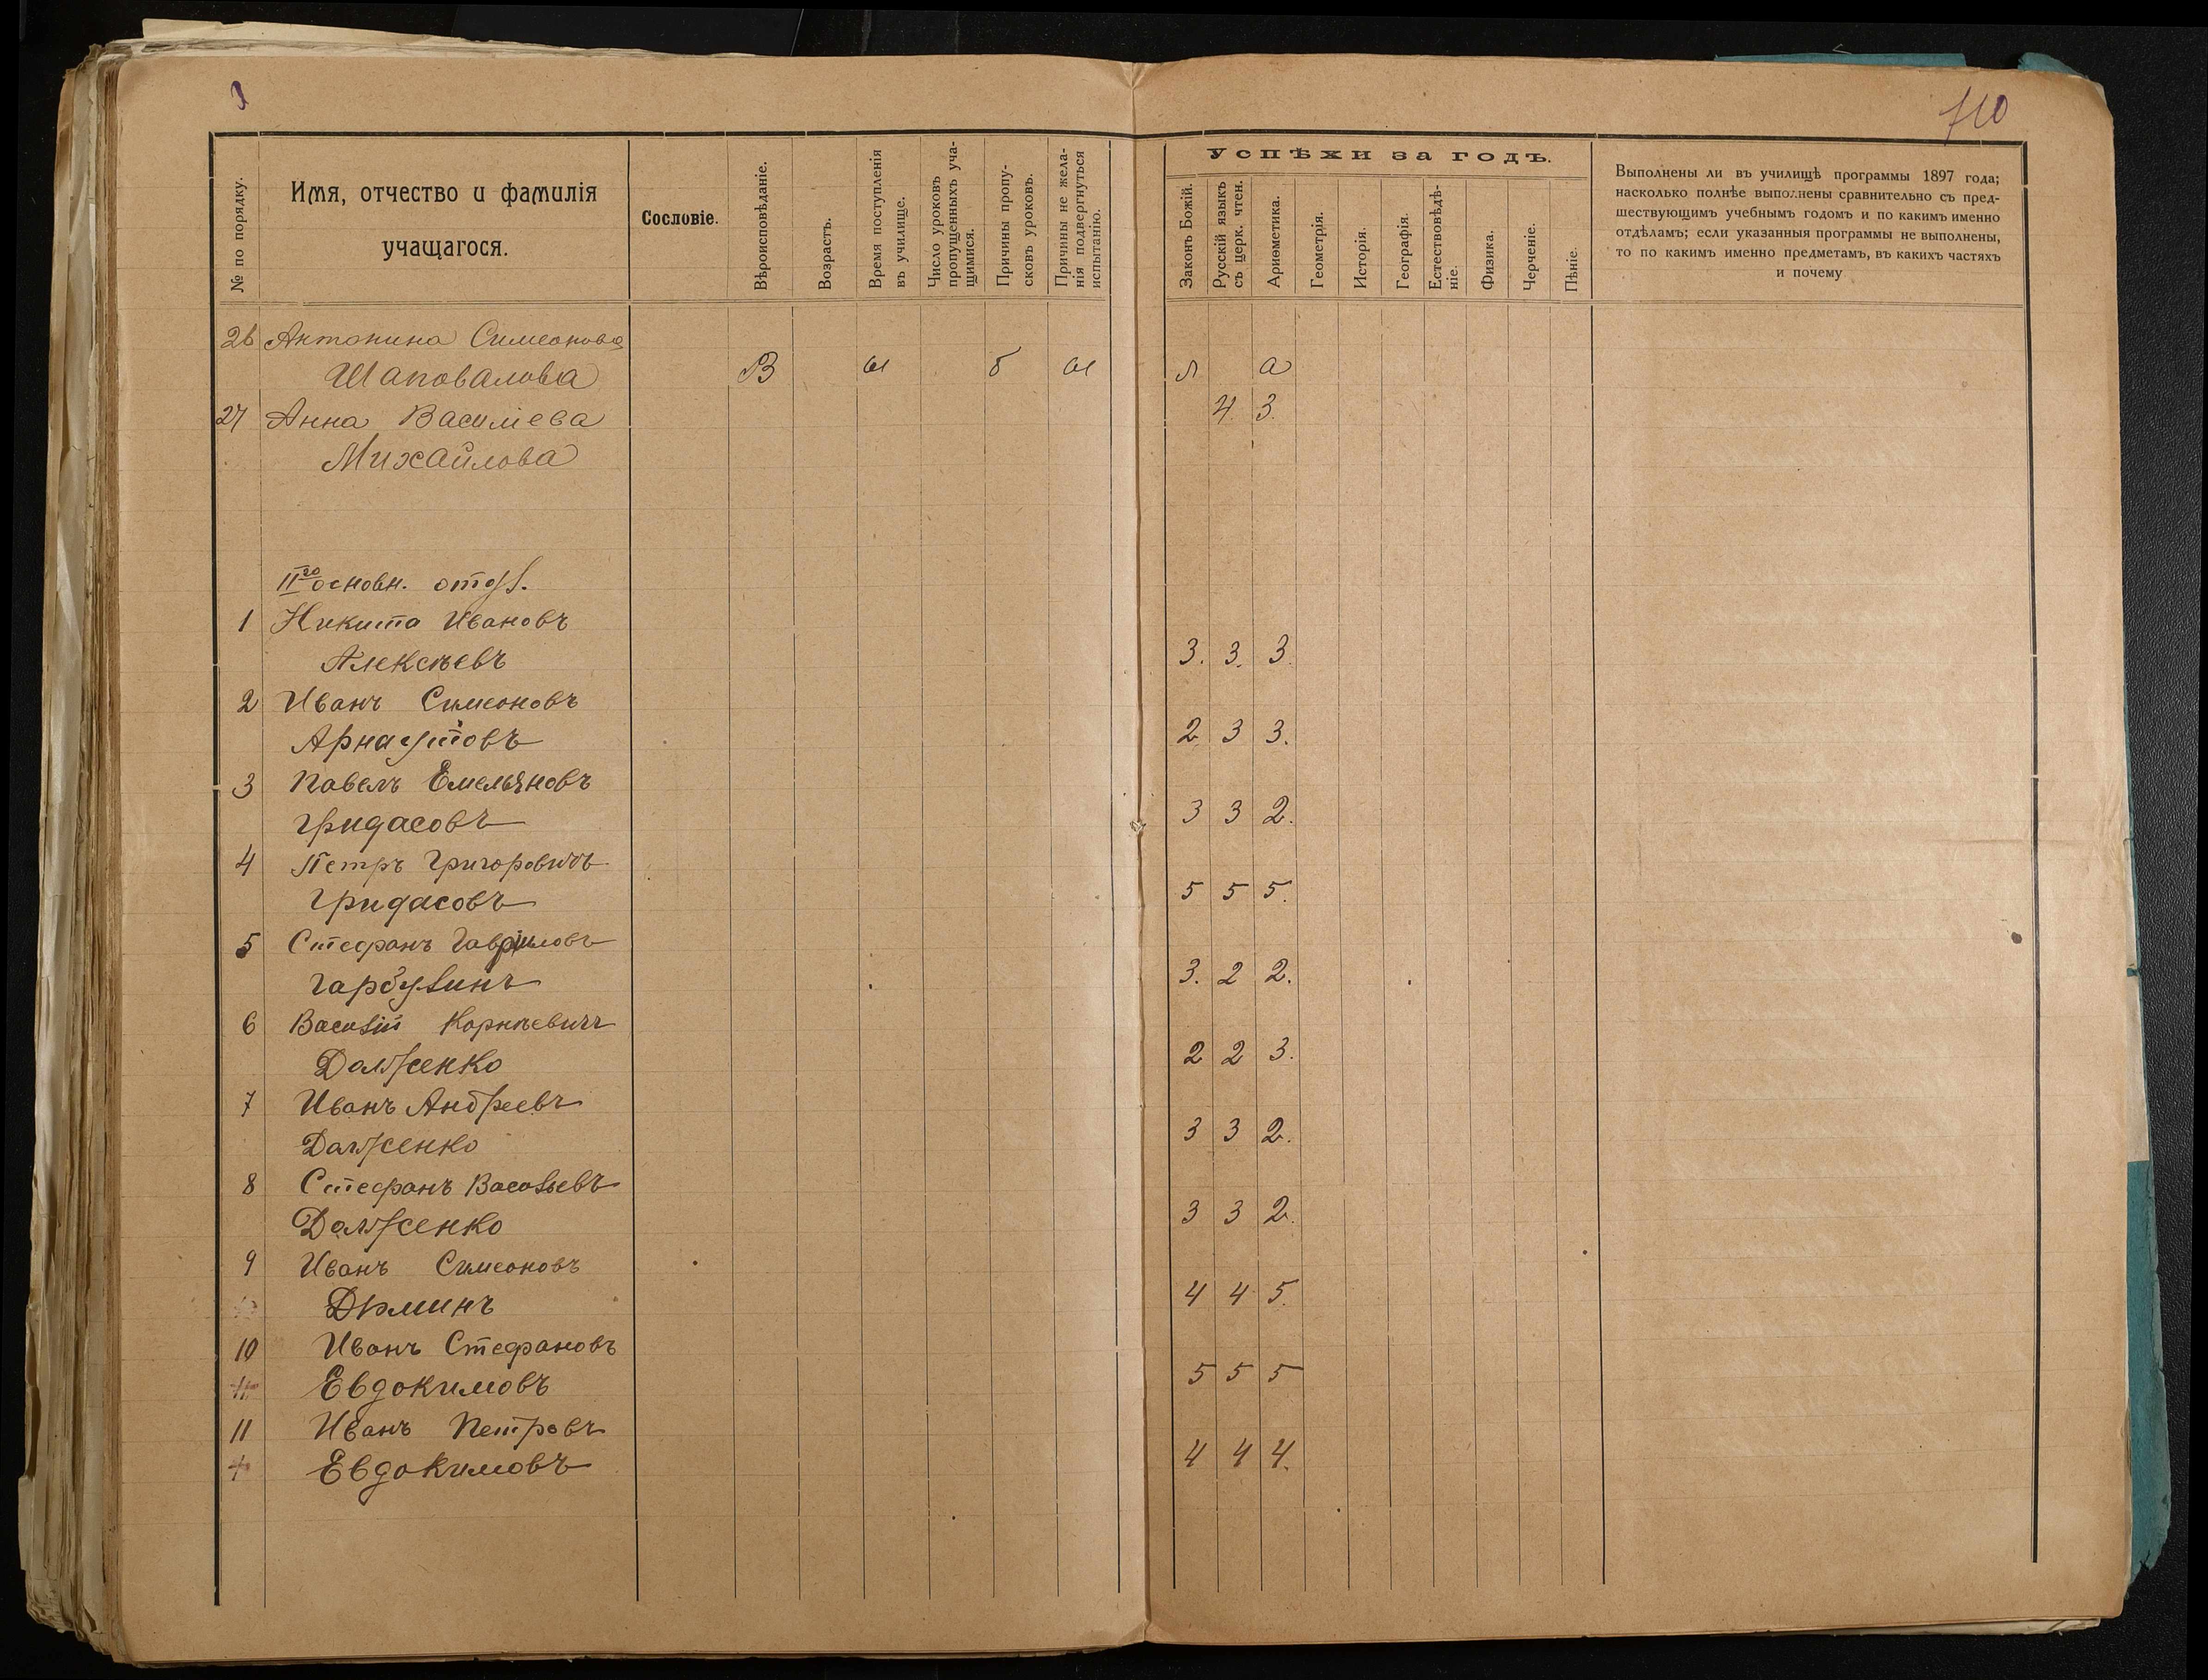 710
№ по порядку.
Имя, отчество и фамилія
учащагося.
Сословіе.
Вѣроисповѣданіе.
Возрастъ.
Время поступленія
въ училище.
Число уроковъ
пропущенныхъ уча-
щимися.
Причины пропу-
сковъ уроковъ.
Причины не жела-
нія подвергнуться
испытанію.
Успѣхи за годъ.
Законъ Божій.
Русскій языкъ
съ церк. чтен.
Ариѳметика.
Геометрія.
Исторія.
Географія.
Естествовѣдѣ-
ніе.
Физика.
Черченіе.
Пѣніе.
Выполнены ли въ училищѣ программы 1897 года;
насколько полнѣе выполнены сравнительно съ пред-
шествующимъ учебнымъ годомъ и по какимъ именно
отдѣламъ; если указанныя программы не выполнены,
то по какимъ именно предметамъ, въ какихъ частяхъ
и почему
26 Антонина Симеонова
Шаповалова В ы б ы л а
27 Анна Василіева 4. 3.
Михайлова
II го основн. отдѣл.
1 Никита Ивановъ
Алексѣевъ 3. 3. 3.
2 Иванъ Симеоновъ
Арнаутовъ 2 3 3.
3 Павелъ Емельяновъ
Гридасовъ 3 3 2.
4 Петръ Григоровичъ
Гридасовъ 5 5 5.
5 Стефанъ Гавриловъ
Гарбузинъ 3. 2 2.
6 Василій Корнѣевичъ
Долженко 2 2 3.
7 Иванъ Андреевъ
Долженко 3 3 2.
8 Стефанъ Васильевъ
Долженко 3 3 2.
9 Иванъ Симеоновъ
Дѣминъ 4 4 5.
10 Иванъ Стефановъ
Евдокимовъ 5 5 5
11 Иванъ Петровъ
Евдокимовъ 4 4 4.